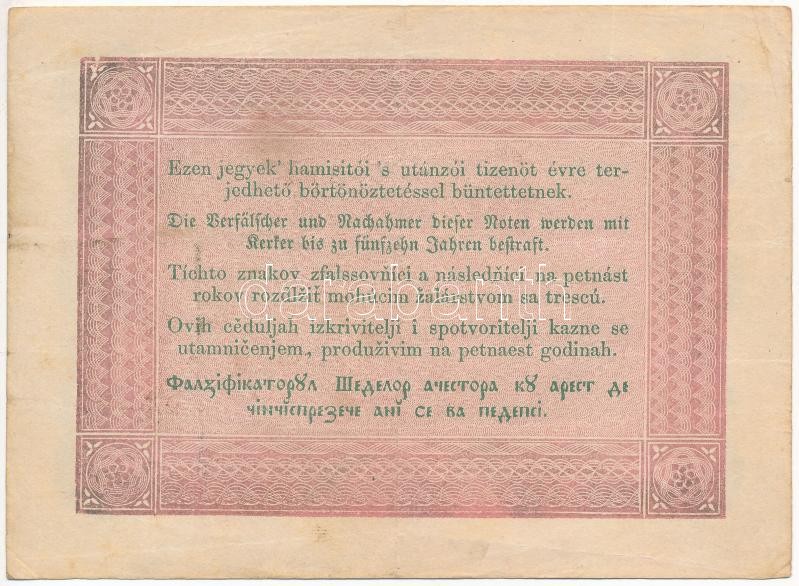 Ezen jegyek' hamisítói 's utánzói tizenöt évre ter-
jedhető börtönöztetéssel büntettetnek.
Die Verfälscher und Nachahmer dieser Noten werden mit
Kerker bis zu fünfzehn Jahren bestraft.
Tíchto znakov zfalssovňíci a následňíci na petnást
rokov rozdlžiť mohúcim žalárstvom sa trescú.
Ovih cěduljah izkrivitelji i spotvoritelji kazne se
utamničenjem, produživim na petnaest godinah.
Фалꙋіфікаторꙋл Шеделор ачестора кꙋ арест де
чінчіспрезече ані се ва педепсі.
darabanth